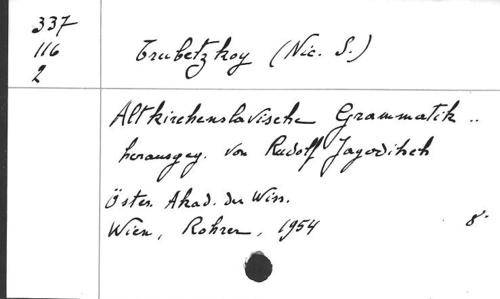 337
116
2
Trubetzkoy (Nic. S.)
Altkirchenslavische Grammatik ..
herausgeg. von Rudolf Jagoditsch
Öster. Akad. der Wiss.
Wien, Rohrer, 1954 8°